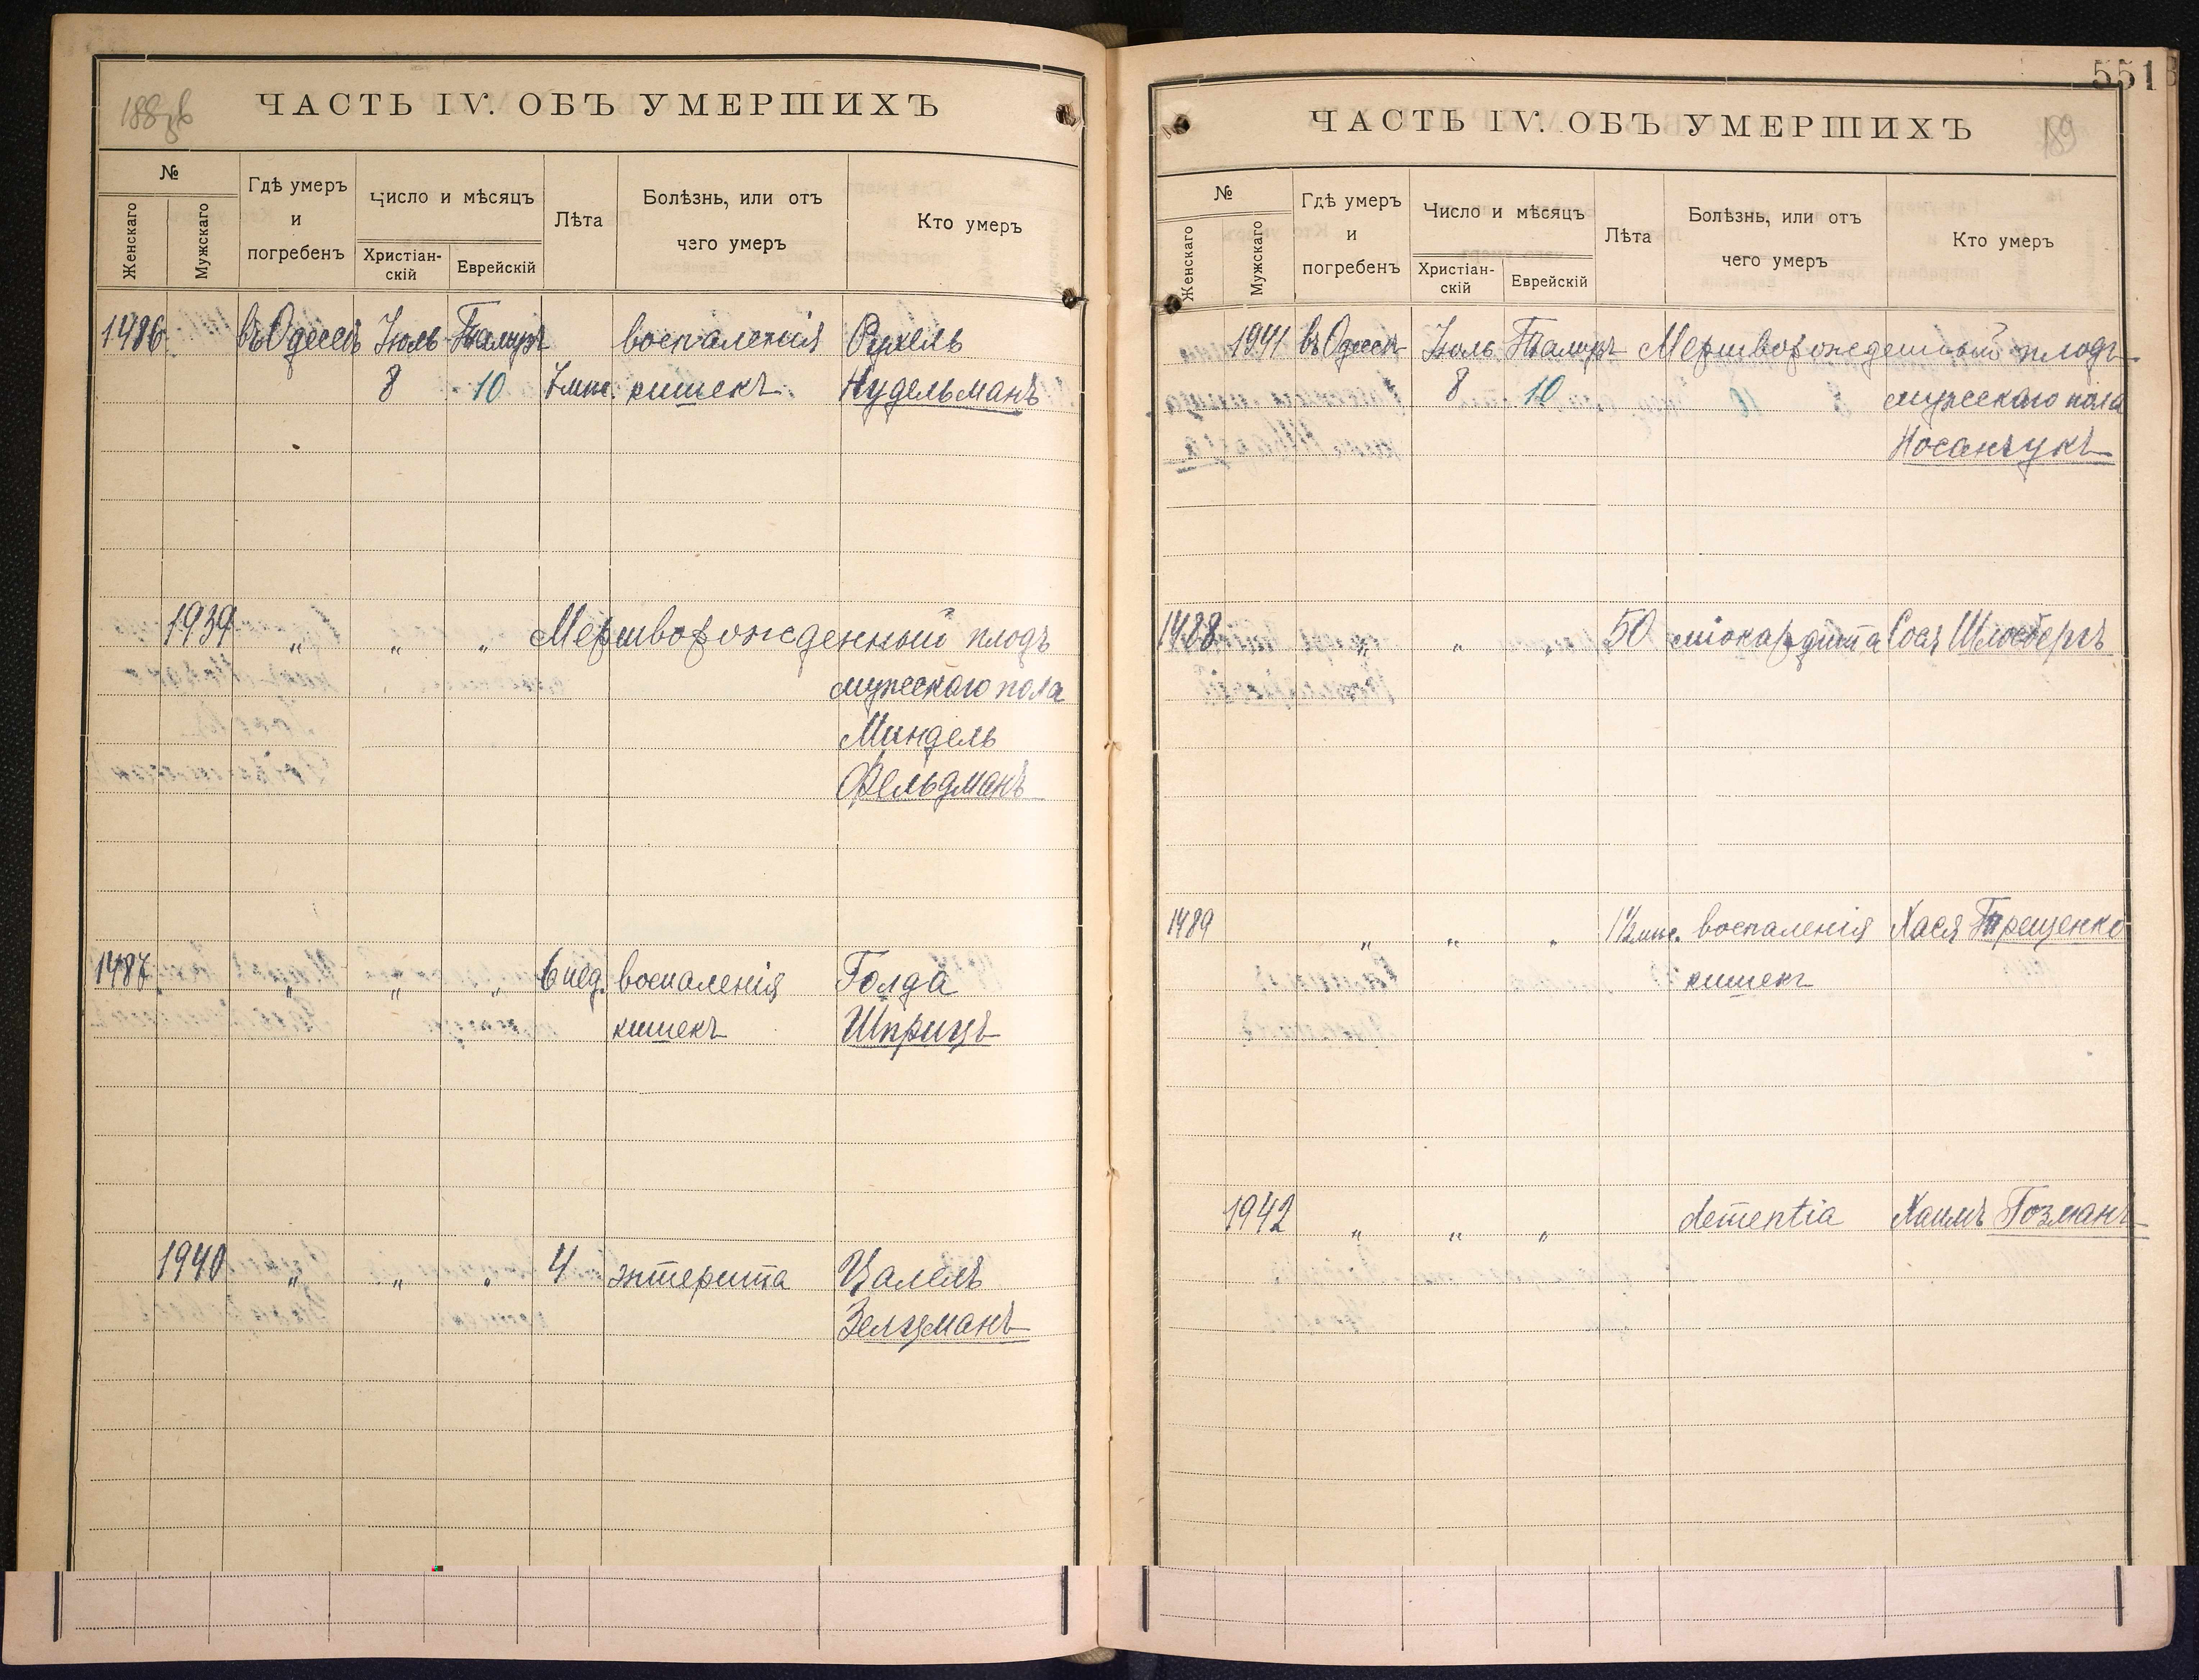 188 об
ЧАСТЬ IV. ОБЪ УМЕРШИХЪ
№
Женскаго
Мужскаго
Гдѣ умеръ и погребенъ
Число и мѣсяцъ
Христіан-скій
Еврейскій
Лѣта
Болѣзнь, или отъ чего умеръ
Кто умеръ
1486 въ Одессѣ Іюль Тамузъ воспаленія Рухель
8 10 7 мѣс. кишекъ Нудельманъ
1939 " " " Мертворожденный плодъ
мужескаго пола
Миндель
Фельдманъ
1487 " " " 6 нед. воспаленія Голда
кишекъ Шприцъ
1940 " " " 4 энтерита Цалель
Зелцманъ
551
ЧАСТЬ IV. ОБЪ УМЕРШИХЪ
189
№
Женскаго
Мужскаго
Гдѣ умеръ и погребенъ
Число и мѣсяцъ
Христіан-скій
Еврейскій
Лѣта
Болѣзнь, или отъ чего умеръ
Кто умеръ
1941 въ Одессѣ Іюль Тамузъ Мертворожденный плодъ
8 10 мужескаго пола
Носанчукъ
1488 " " " 50 міокардита Сося Шлосбергъ
1489 " " " 1½ мѣс. воспаленія Хася Трещенко
кишекъ
1942 " " " dementia Хаимъ Гозманъ